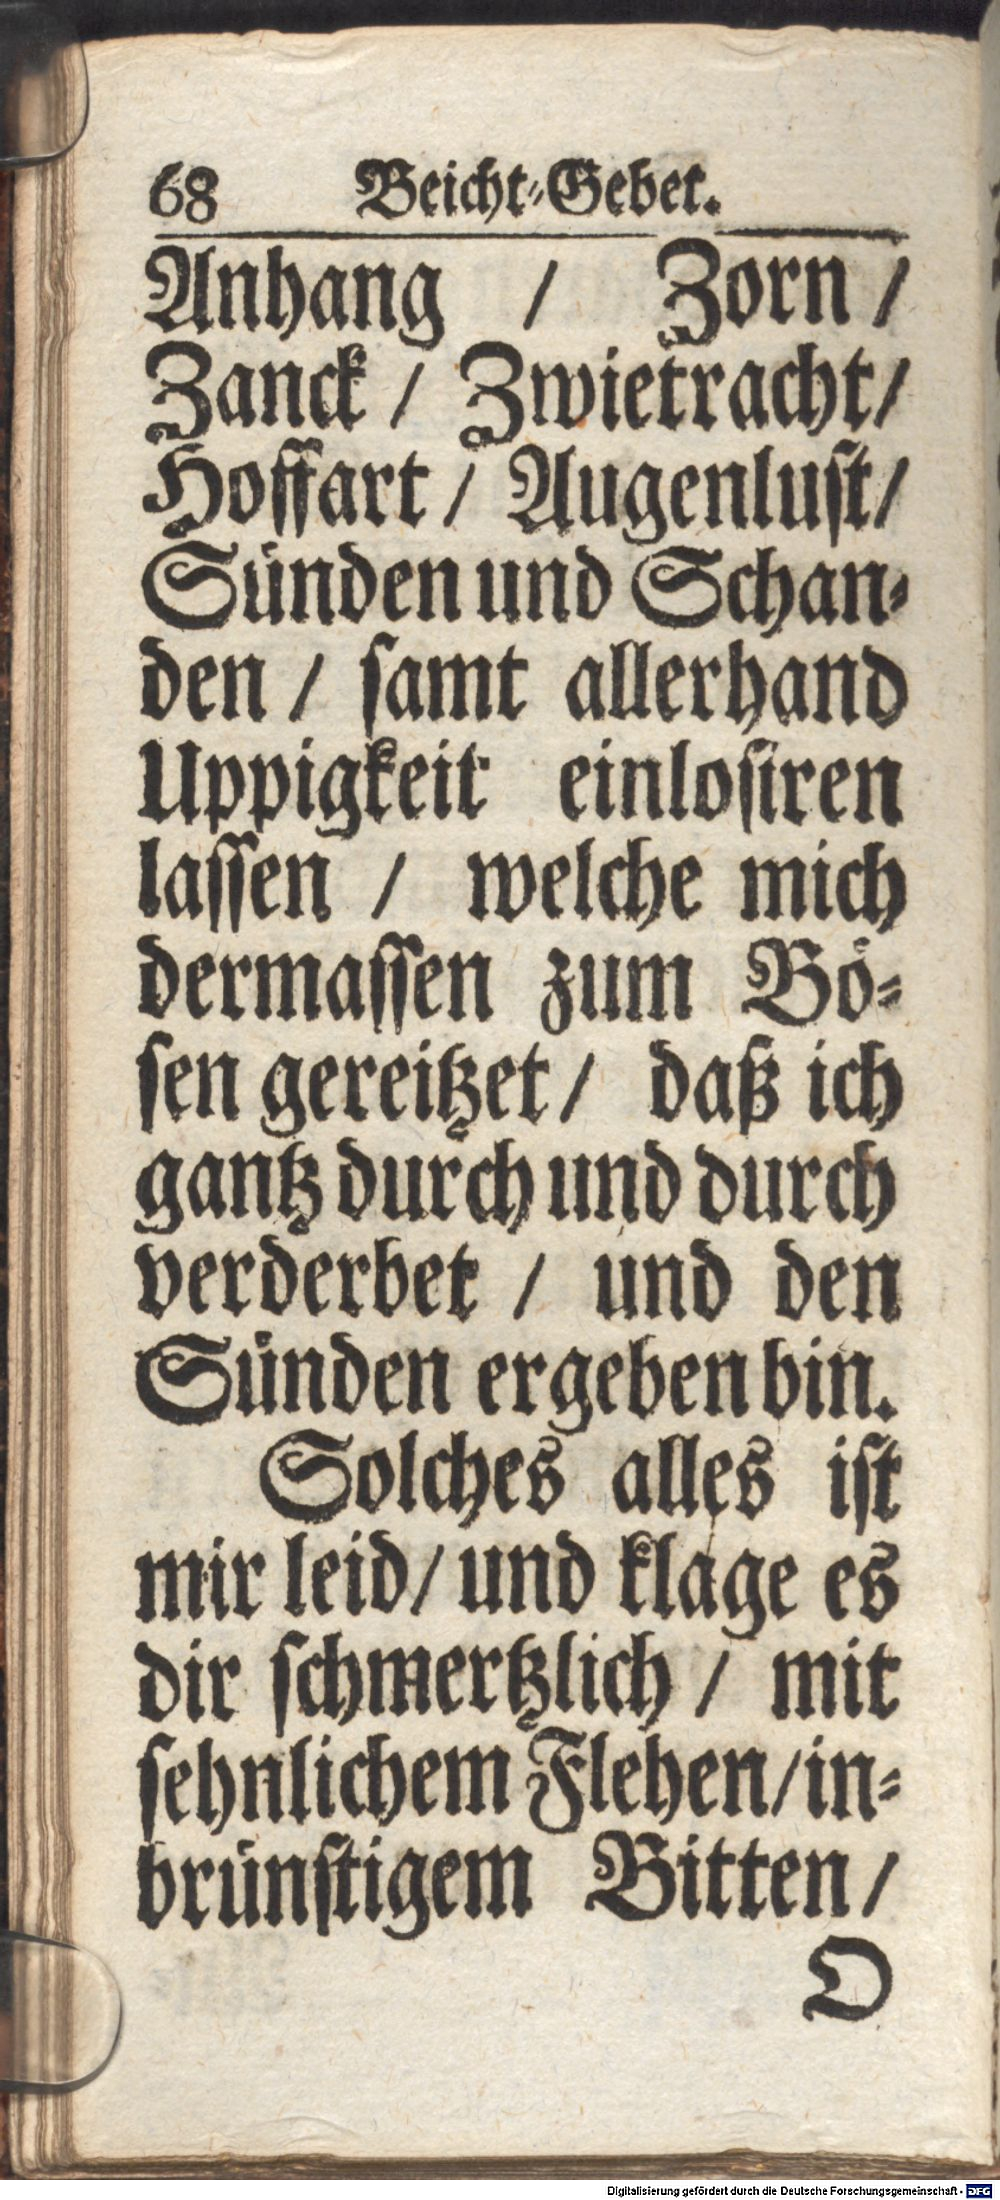 68 Beicht-Gebet.
Anhang / Zorn /
Zanck / Zwietracht /
Hoffart / Augenlust /
Sünden und Schan-
den / samt allerhand
Uppigkeit einlosiren
lassen / welche mich
dermassen zum Bö-
sen gereitzet / daß ich
gantz durch und durch
verderbet / und den
Sünden ergeben bin.
Solches alles ist
mir leid / und klage es
dir schmertzlich / mit
sehnlichem Flehen / in-
brünstigem Bitten /
O
Digitalisierung gefördert durch die Deutsche Forschungsgemeinschaft - DFG